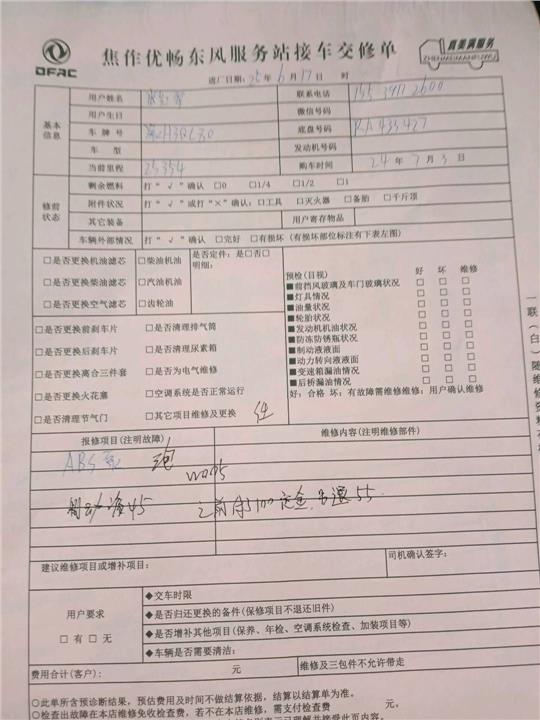 DFAC
焦作优畅东风服务站接车交修单
真美满服务
ZHENMEIMANFUWU
进厂日期: 25年 6月 17日 时
基本信息
用户姓名 联系电话
用户生日 微信号码
车牌号 底盘号码 RA433427
车型 发动机号码
当前里程 25354 购车时间 24年 7月 3日
修前状态
剩余燃料 打“√”确认 □0 □1/4 □1/2 □1
附件状况 打“√”或打“×”确认: □工具 □灭火器 □备胎 □千斤顶
其它装备 用户寄存物品
车辆外部情况 打“√”确认 □完好 □有损坏 (有损坏部位标注有下表左图)
□是否更换机油滤芯 □柴油机油 是否定件: 是□否□
明细:
□是否更换柴油滤芯 □汽油机油
□是否更换空气滤芯 □齿轮油
预检(目视) 好 坏 维修
■前挡风玻璃及车门玻璃状况 □ □ □
■灯具情况 □ □ □
■油量状况 □ □ □
■轮胎状况 □ □ □
■发动机机油状况 □ □ □
■防冻防锈瓶状况 □ □ □
■制动液液面 □ □ □
■动力转向液液面 □ □ □
■变速箱漏油情况 □ □ □
■后桥漏油情况 □ □ □
好: 合格 坏: 有故障需维修维修: 用户确认维修
□是否更换前刹车片 □是否清理排气筒
□是否更换后刹车片 □是否清理尿素箱
□是否更换离合三件套 □是否为电气维修
□是否更换火花塞 □空调系统是否正常运行
□是否清理节气门 □其它项目维修及更换
报修项目(注明故障) 维修内容(注明维修部件)
ABS泵
制动液45 之前余100定金,另退55
建议维修项目或增补项目: 司机确认签字:
用户要求
□有 □无
◆交车时限
◆是否归还更换的备件(保修项目不退还旧件)
◆是否增补其他项目(保养、年检、空调系统检查、加装项目等)
◆车辆是否需要清洁:
费用合计(客户): 元 维修及三包件不允许带走
○此单所含预诊断结果,预估费用及时间不做结算依据,结算以结算单为准。
○检查出故障在本店维修免收检查费,若不在本店维修,需支付检查费 元。
一联(白)